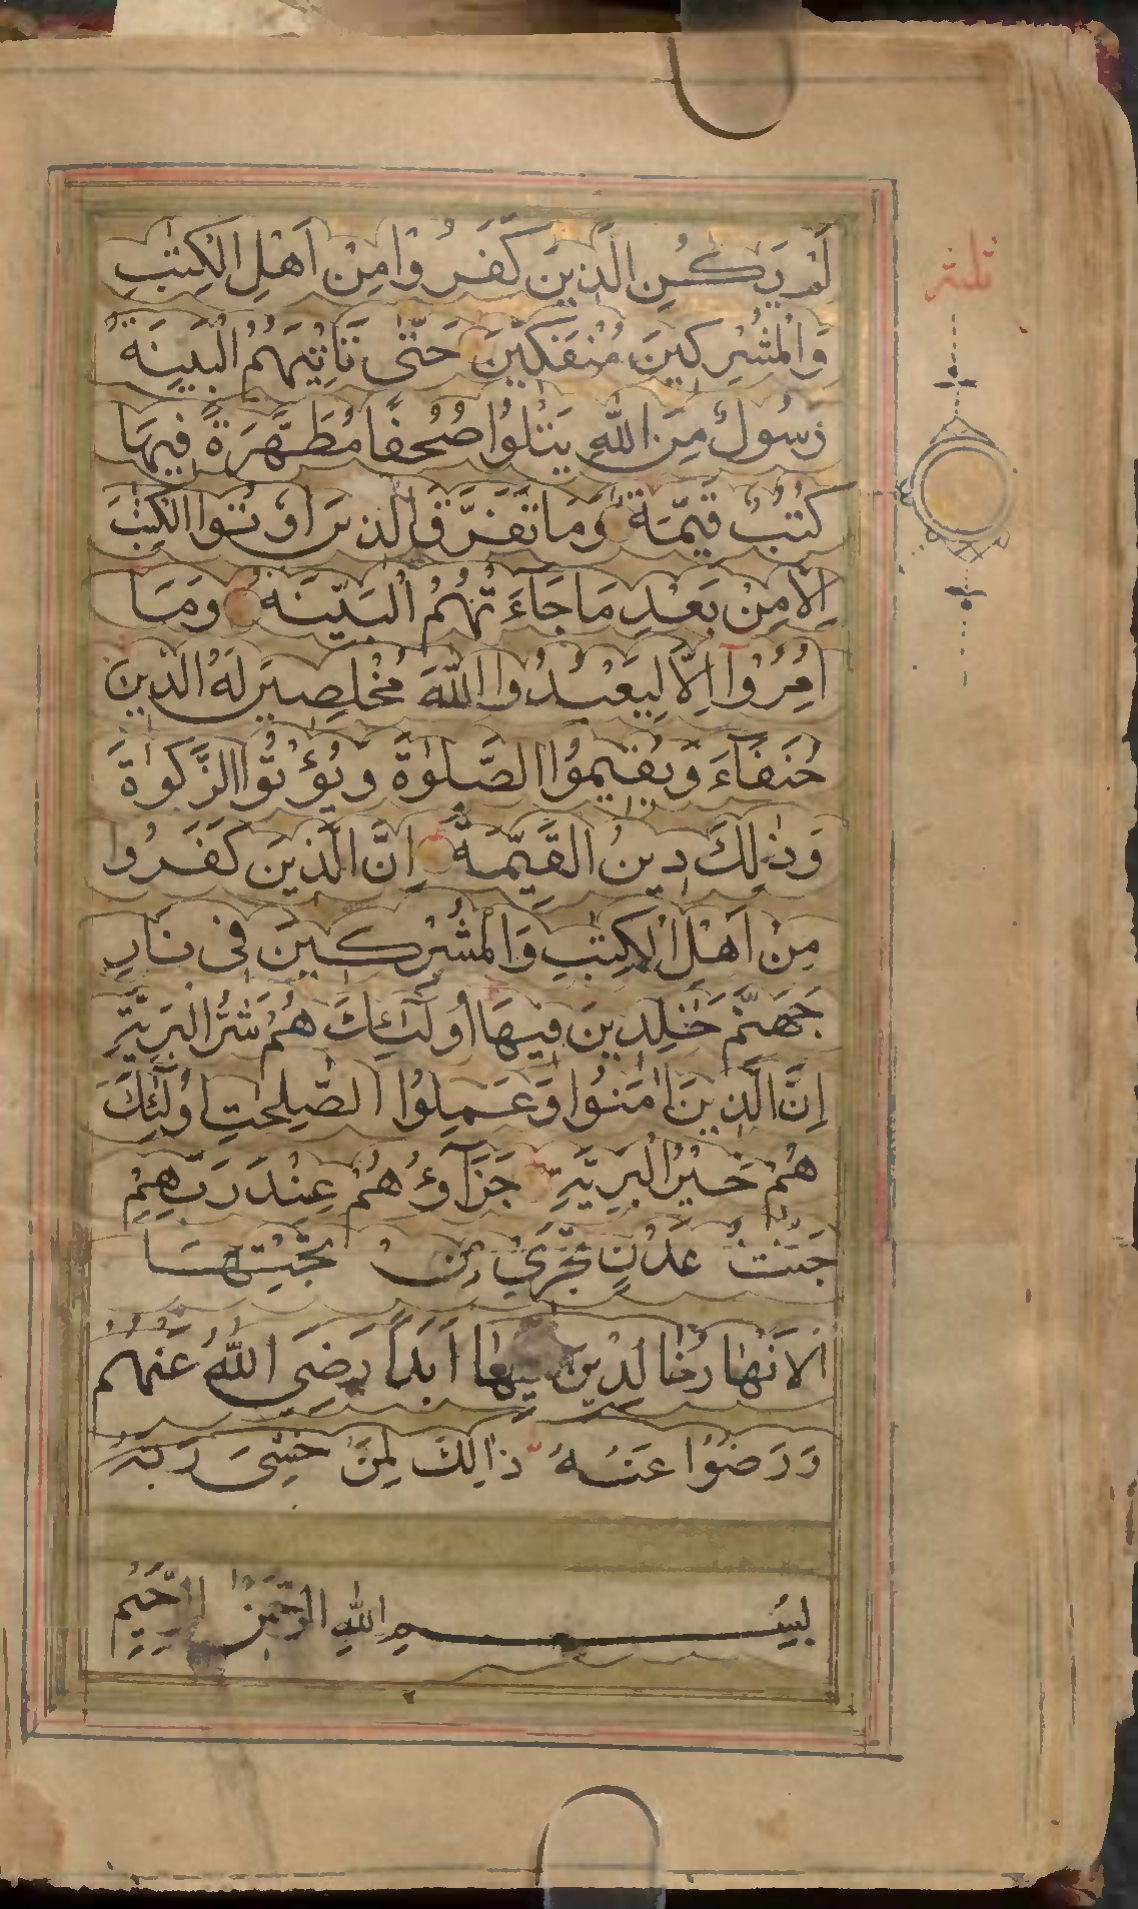 لَمْ يَكُنِ الَّذِينَ كَفَرُوْا مِنْ اَهْلِ الْكِتٰبِ
وَالْمُشْرِكِينَ مُنْفَكِّينَ حَتّٰى تَاْتِيَهُمُ الْبَيِّنَةُ
رَسُولٌ مِنَ اللّٰهِ يَتْلُوْا صُحُفًا مُطَهَّرَةً فِيهَا
كُتُبٌ قَيِّمَةٌ وَمَا تَفَرَّقَ الَّذِينَ اُوْتُوا الْكِتٰبَ
اِلَّا مِنْ بَعْدِ مَا جَآءَتْهُمُ الْبَيِّنَةُ وَمَآ
اُمِرُوْٓا اِلَّا لِيَعْبُدُوا اللّٰهَ مُخْلِصِينَ لَهُ الدِّينَ
حُنَفَآءَ وَيُقِيمُوا الصَّلٰوةَ وَيُؤْتُوا الزَّكٰوةَ
وَذٰلِكَ دِينُ الْقَيِّمَةِ اِنَّ الَّذِينَ كَفَرُوا
مِنْ اَهْلِ الْكِتٰبِ وَالْمُشْرِكِينَ فِى نَارِ
جَهَنَّمَ خٰلِدِينَ فِيهَا اُولٰٓئِكَ هُمْ شَرُّ الْبَرِيَّةِ
اِنَّ الَّذِينَ اٰمَنُوْا وَعَمِلُوا الصّٰلِحٰتِ اُولٰٓئِكَ
هُمْ خَيْرُ الْبَرِيَّةِ جَزَآؤُهُمْ عِنْدَ رَبِّهِمْ
جَنّٰتُ عَدْنٍ تَجْرِيْ مِنْ تَحْتِهَا
الْاَنْهَارُ خَالِدِيْنَ فِيهَا اَبَدًا رَضِيَ اللّٰهُ عَنْهُمْ
وَرَضُوْا عَنْهُ ذَالِكَ لِمَنْ خَشِىَ رَبَّهُ
بِسْمِ اللّٰهِ الرَّحْمٰنِ الرَّحِيْمِ